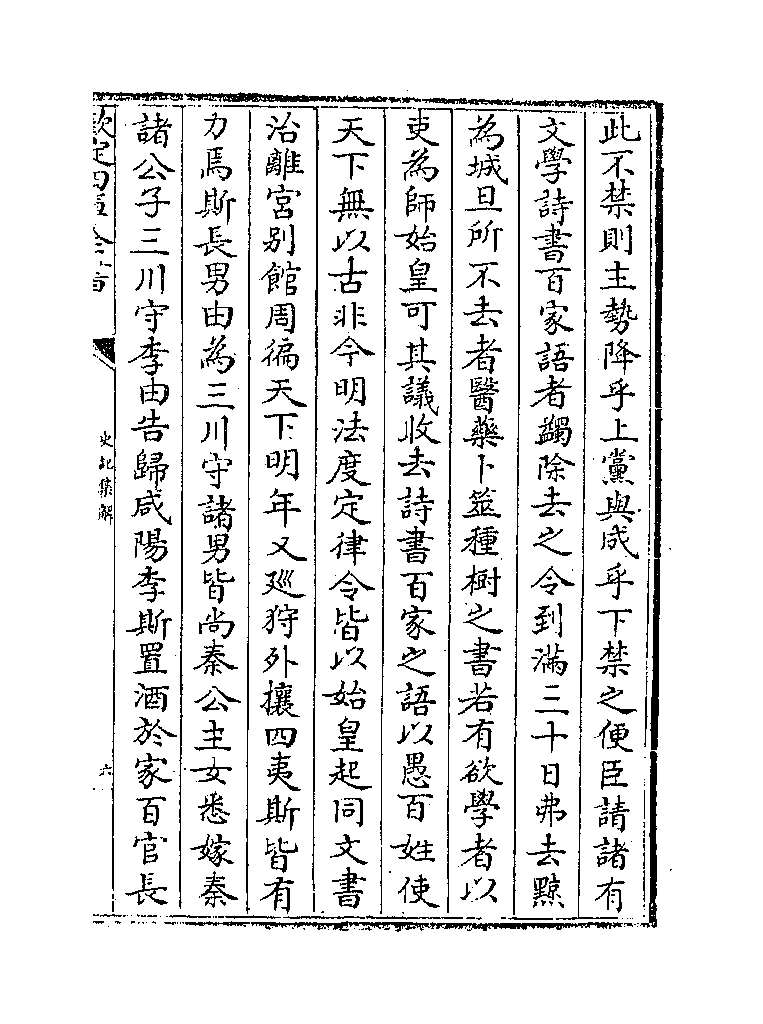 此不禁則主勢降乎上黨與成乎下禁之便臣請諸有
文學詩書百家語者蠲除去之令到滿三十日弗去黥
為城旦所不去者醫藥卜筮種樹之書若有欲學者以
吏為師始皇可其議收去詩書百家之語以愚百姓使
天下無以古非今明法度定律令皆以始皇起同文書
治離宮别館周徧天下明年又廵狩外攘四夷斯皆有
力焉斯長男由為三川守諸男皆尚秦公主女悉嫁秦
諸公子三川守李由告歸咸陽李斯置酒於家百官長
欽定四庫全書
史記集解
六